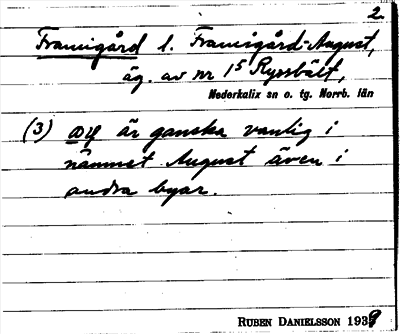 2.
Framigård l. Framigård-August,
äg. av nr 15 Ryssbält,
Nederkalix sn o. tg. Norrb. län
(3) är ganska vanlig i
namnet August även i
andra byar.
RUBEN DANIELSSON 1939